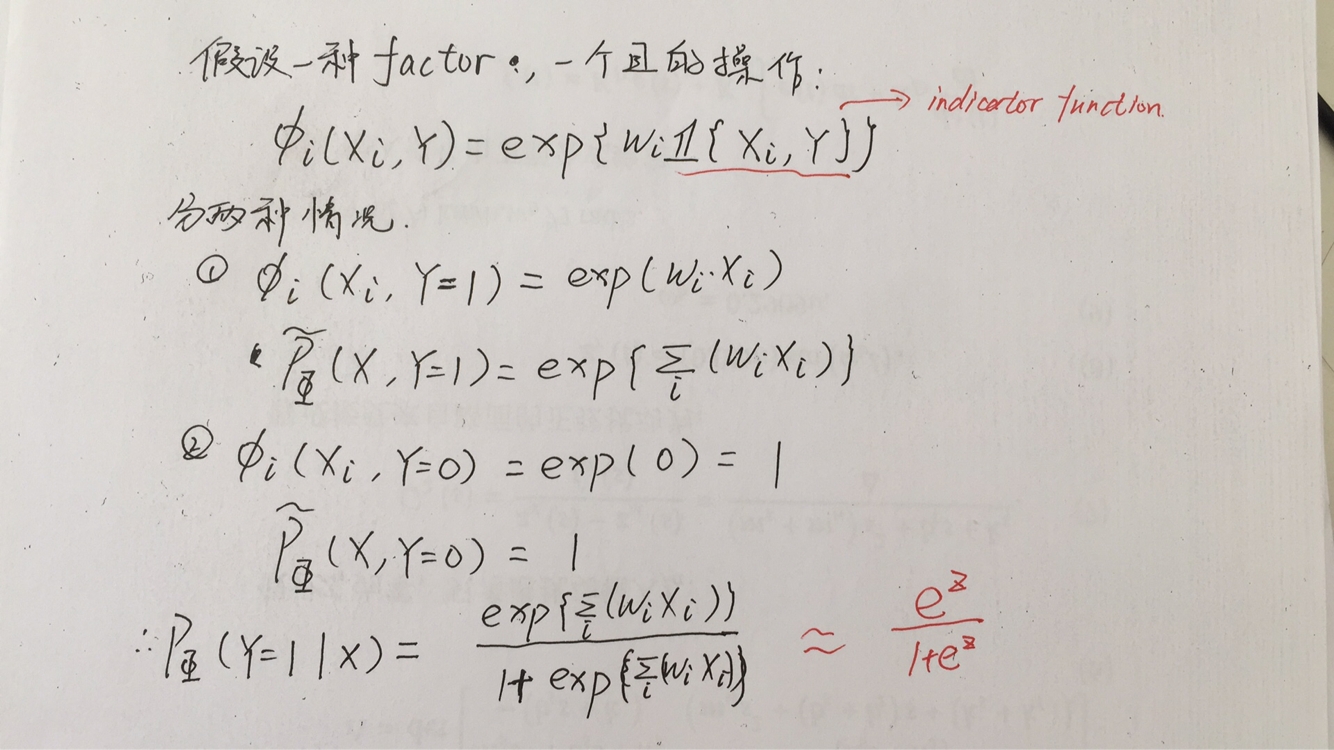 假设一种 factor, 一个且的操作:
ϕi(Xi, Y) = exp{ wi 𝟙{ Xi, Y } } → indicator function.
分两种情况.
① ϕi (Xi, Y=1) = exp( wi·Xi )
P̃Φ (X, Y=1) = exp{ Σi (wi Xi) }
② ϕi (Xi, Y=0) = exp( 0 ) = 1
P̃Φ (X, Y=0) = 1
∴ PΦ (Y=1 | X) = exp{Σi(wi Xi)} / 1+ exp{Σi(wi Xi)} ≈ e^z / 1+e^z